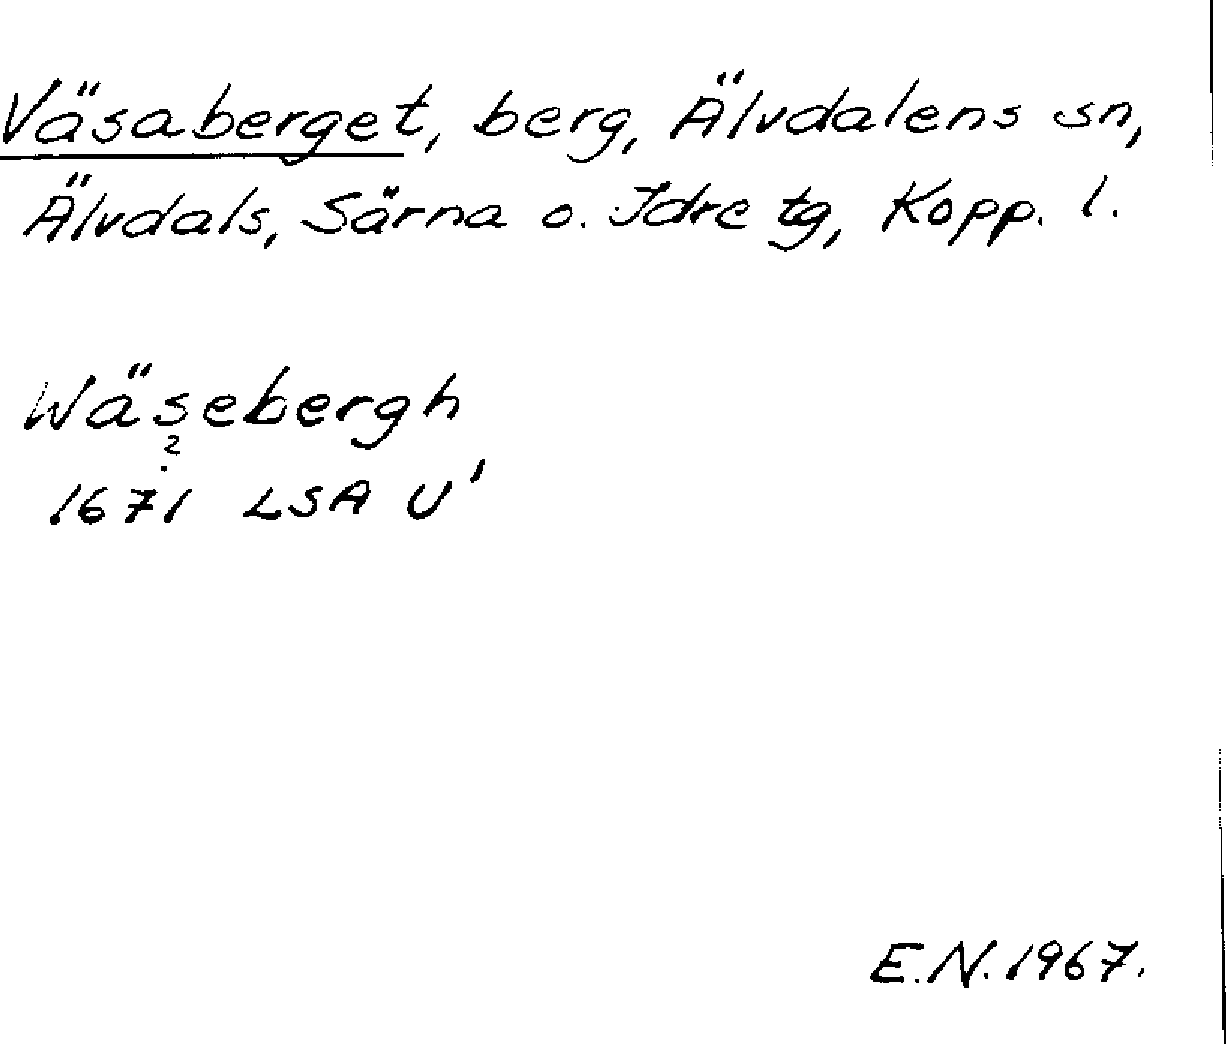 Väsaberget, berg, Älvdalens sn,
Älvdals, Särna o. Idre tg, Kopp. l.
Wäsebergh
?
1671 LSA U'
E.N. 1967.